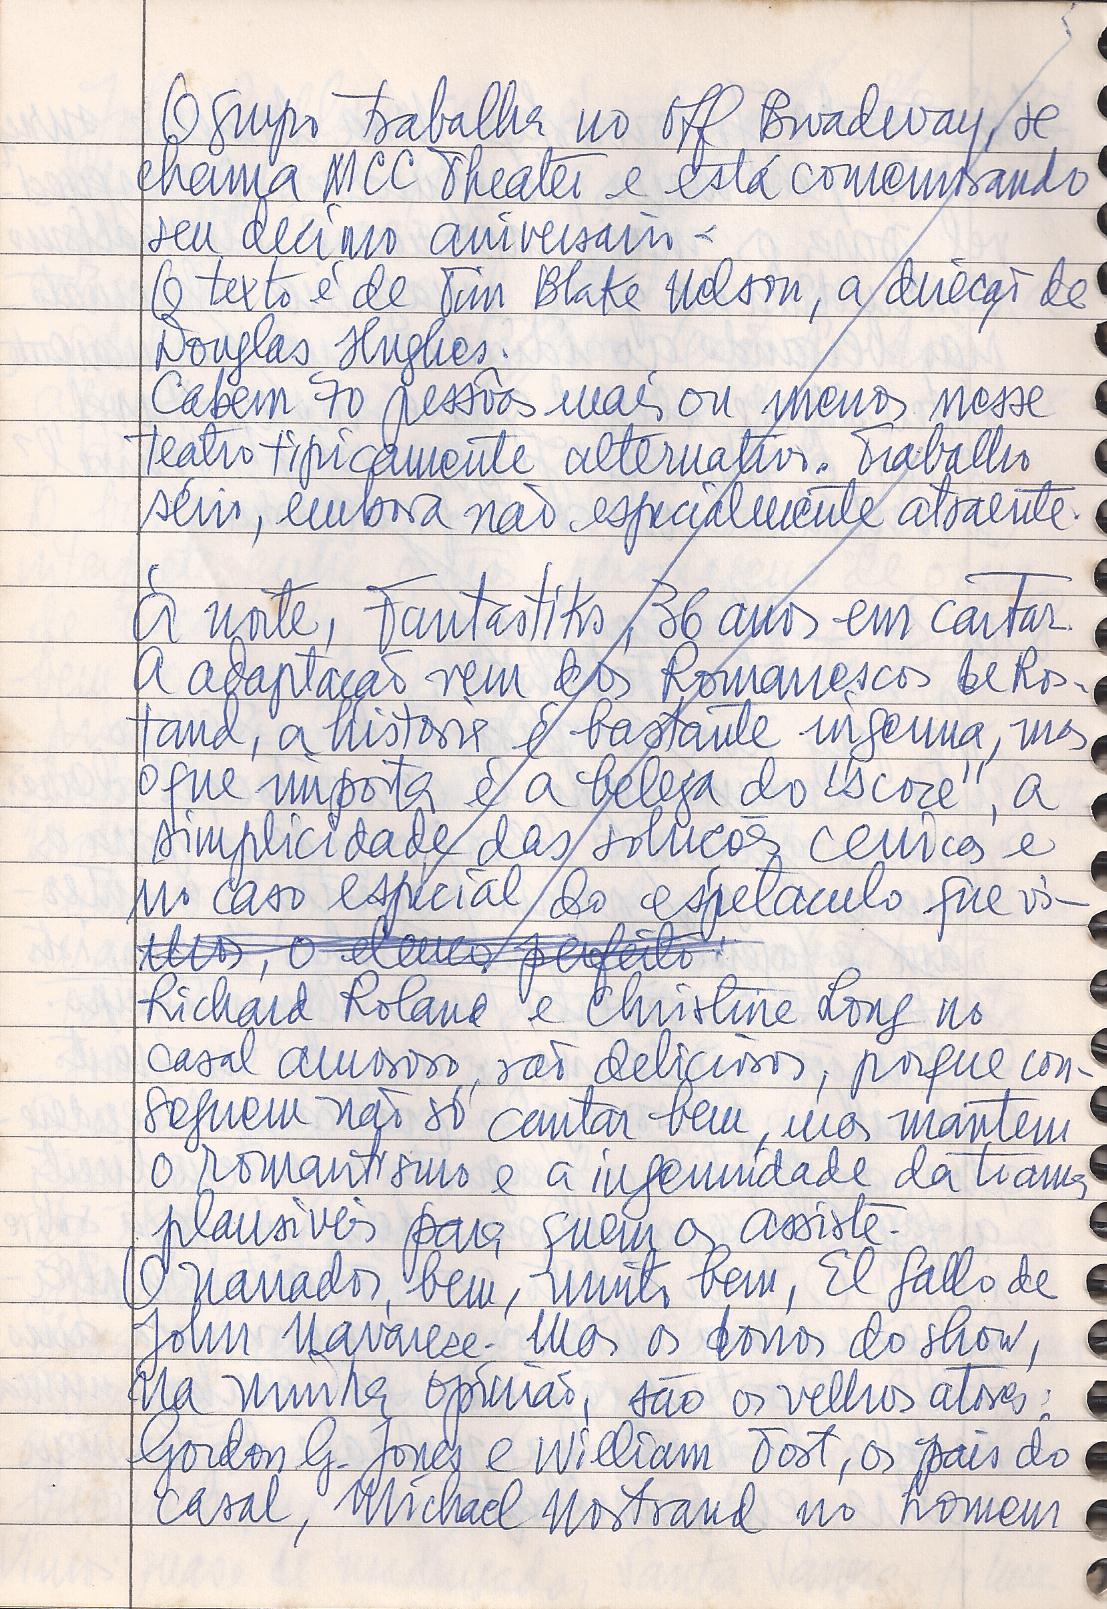 O grupo trabalha no off Broadway, se
chama MCC Theater e está comemorando
seu decimo aniversario.
O texto é de Tim Blake Nelson, a direção de
Douglas Hughes.
Cabem 70 pessôas mais ou menos nesse
teatro tipicamente alternativo. Trabalho
sério, embora não especialmente atraente.
À noite, Fantastiks, 36 anos em cartaz.
A adaptação vem dos Romanescos de Ros-
tand, a história é bastante ingenua, mas
o que importa é a beleza do "score", a
simplicidade das soluções cenicas e
no caso especial do espetaculo que vi-
mos, o elenco perfeito.
Richard Roland e Christine Long no
casal amoroso, são deliciosos, porque con-
seguem não só cantar bem, mas mantem
o romantismo e a ingenuidade da trama
plausiveis para quem os assiste.
O narrador, bem, muito bem, El Gallo de
John Navarese. Mas os donos do show,
na minha opinião, são os velhos atores:
Gordon G. Jones e William Tost, os pais do
casal, Michael Nostrand no homem